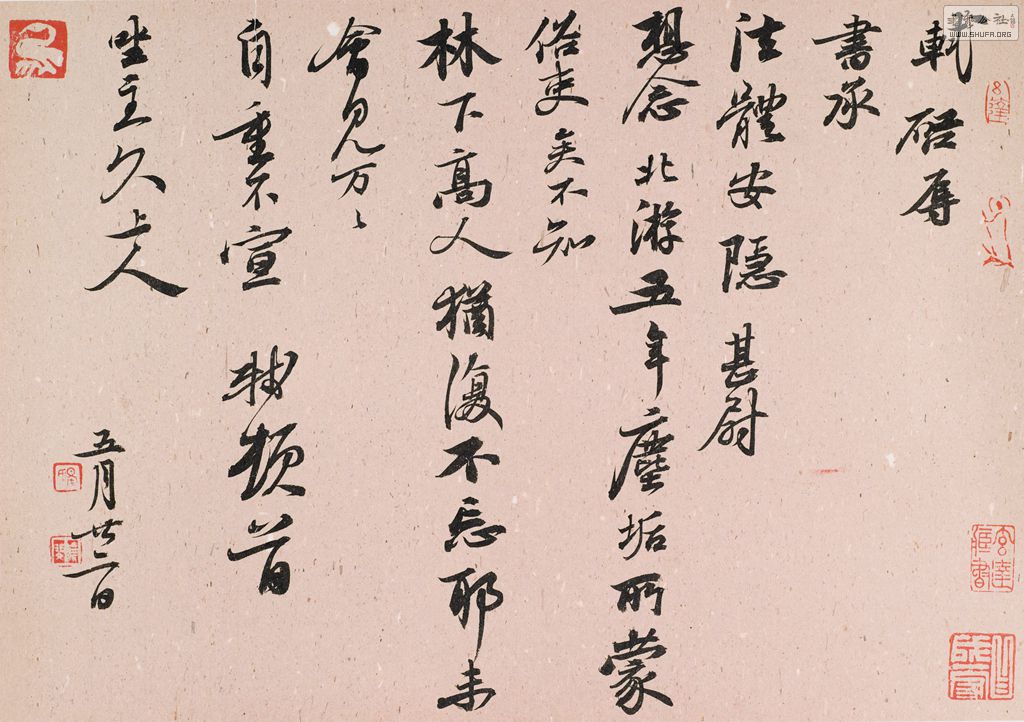 WWW.SHUFA.ORG
軾啓辱
書承
法體安隱甚尉
想念北游五年塵垢所蒙
俗吏矣不知
林下高人猶復不忘耶未
會見万〻
自重不宣 軾頓首
坐主久上人
五月廿二日